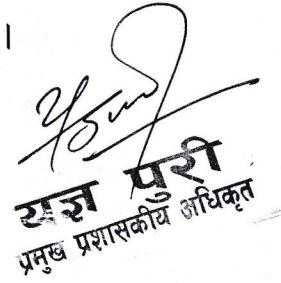 ।
यज्ञ पुरी
प्रमुख प्रशासकीय अधिकृत